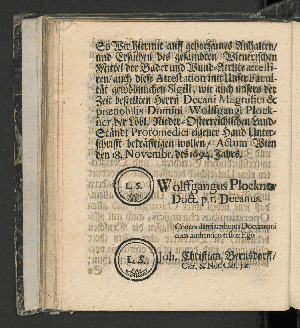 So Wir hiermit auff gehorsames Anhalten/
und Ersuchen des gesambten Wienerischen
Mittel der Bader und Wund-Aertzte attesti-
ren/ auch diese Attestation mit Unser Facul-
tät gewöhnlichen Sigill, wie auch unsers der
Zeit bestellten Herrn Decani Magnifici &
prænobilis Domini Wolffgangi Plock-
ner, der Löbl. Nieder-Österreichischen Land-
Ständt Protomedici eigener Hand Unter-
schrifft bekräfftigen wollen/ Actum Wien
den 18. Novembr. des 1694. Jahrs.
L. S.
Wolffgangus Plockner
Doct. p. t. Decanus.
L. S.
Joh. Christian, Bernsdorff/
Cæs. & Not. Cæs. jur.